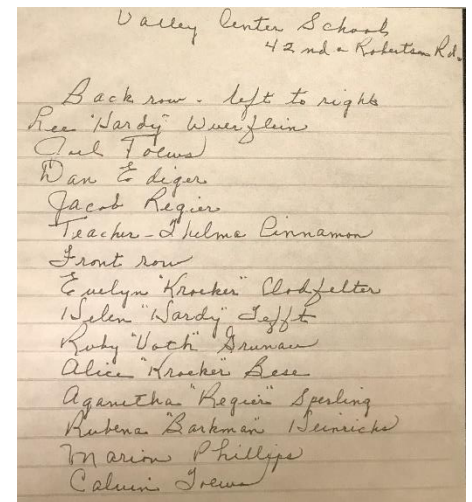 Valley Center School
42nd & Robertson Rd.
Back row - left to right
Lee "Hardy" Wuerflein
Joel Toews
Dan Ediger
Jacob Regier
Teacher - Thelma Cinnamon
Front row
Evelyn "Kroeker" Clodfelter
Helen "Hardy" Tefft
Ruby "Voth" Grunau
Alice "Kroeker" Bese
Aganetha "Regier" Sperling
Rubena "Barkman" Heinrichs
Marion Phillips
Calvin Toews